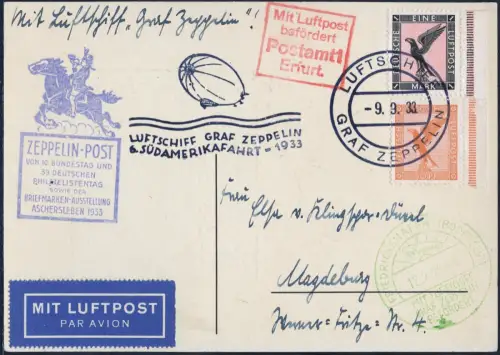 Mit Luftschiff "Graf Zeppelin"!
Mit Luftpost
befördert
Postamt 1
Erfurt.
DEUTSCHE EINE LUFTPOST
MARK
LUFTSCHIFF
- 9. 9. 33
GRAF ZEPPELIN
LUFTSCHIFF GRAF ZEPPELIN
6. SÜDAMERIKAFAHRT - 1933
ZEPPELIN-POST
VOM 10. BUNDESTAG UND
39. DEUTSCHEN
PHILATELISTENTAG
SOWIE DER
BRIEFMARKEN-AUSSTELLUNG
ASCHERSLEBEN 1933
Frau
Else v.
Magdeburg
MIT LUFTPOST
PAR AVION